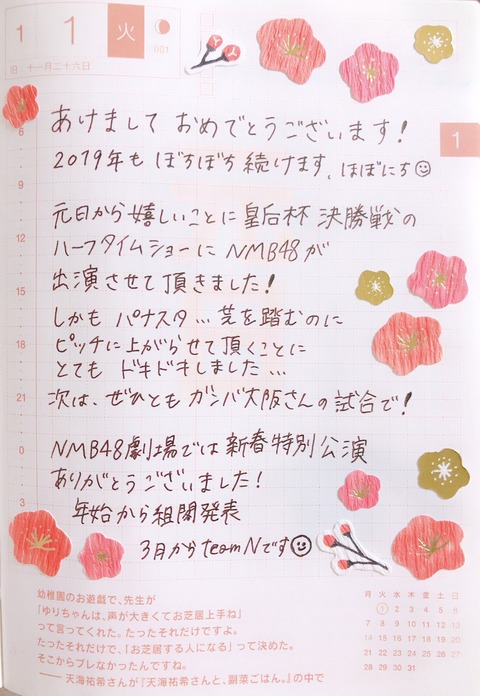 1 1 火 001
旧 十一月二十六日
1
あけまして おめでとうございます!
2019年も ぼちぼち続けます、ほぼにち☺
元日から嬉しいことに皇后杯 決勝戦の
ハーフタイムショーに NMB48が
出演させて頂きました!
しかも パナスタ…芝を踏むのに
ピッチに上がらせて頂くことに
とても ドキドキしました…
次は、ぜひとも ガンバ大阪さんの試合で!
NMB48劇場では新春特別公演
ありがとうございました!
年始から組閣発表
3月からteamNです☺
6
9
12
15
18
21
0
3
幼稚園のお遊戯で、先生が
「ゆりちゃんは、声が大きくてお芝居上手ね」
って言ってくれた。たったそれだけですよ。
たったそれだけで、「お芝居する人になる」って決めた。
そこからブレなかったんですね。
── 天海祐希さんが『天海祐希さんと、副菜ごはん。』の中で
月 火 水 木 金 土 日
1 2 3 4 5 6
7 8 9 10 11 12 13
14 15 16 17 18 19 20
21 22 23 24 25 26 27
28 29 30 31